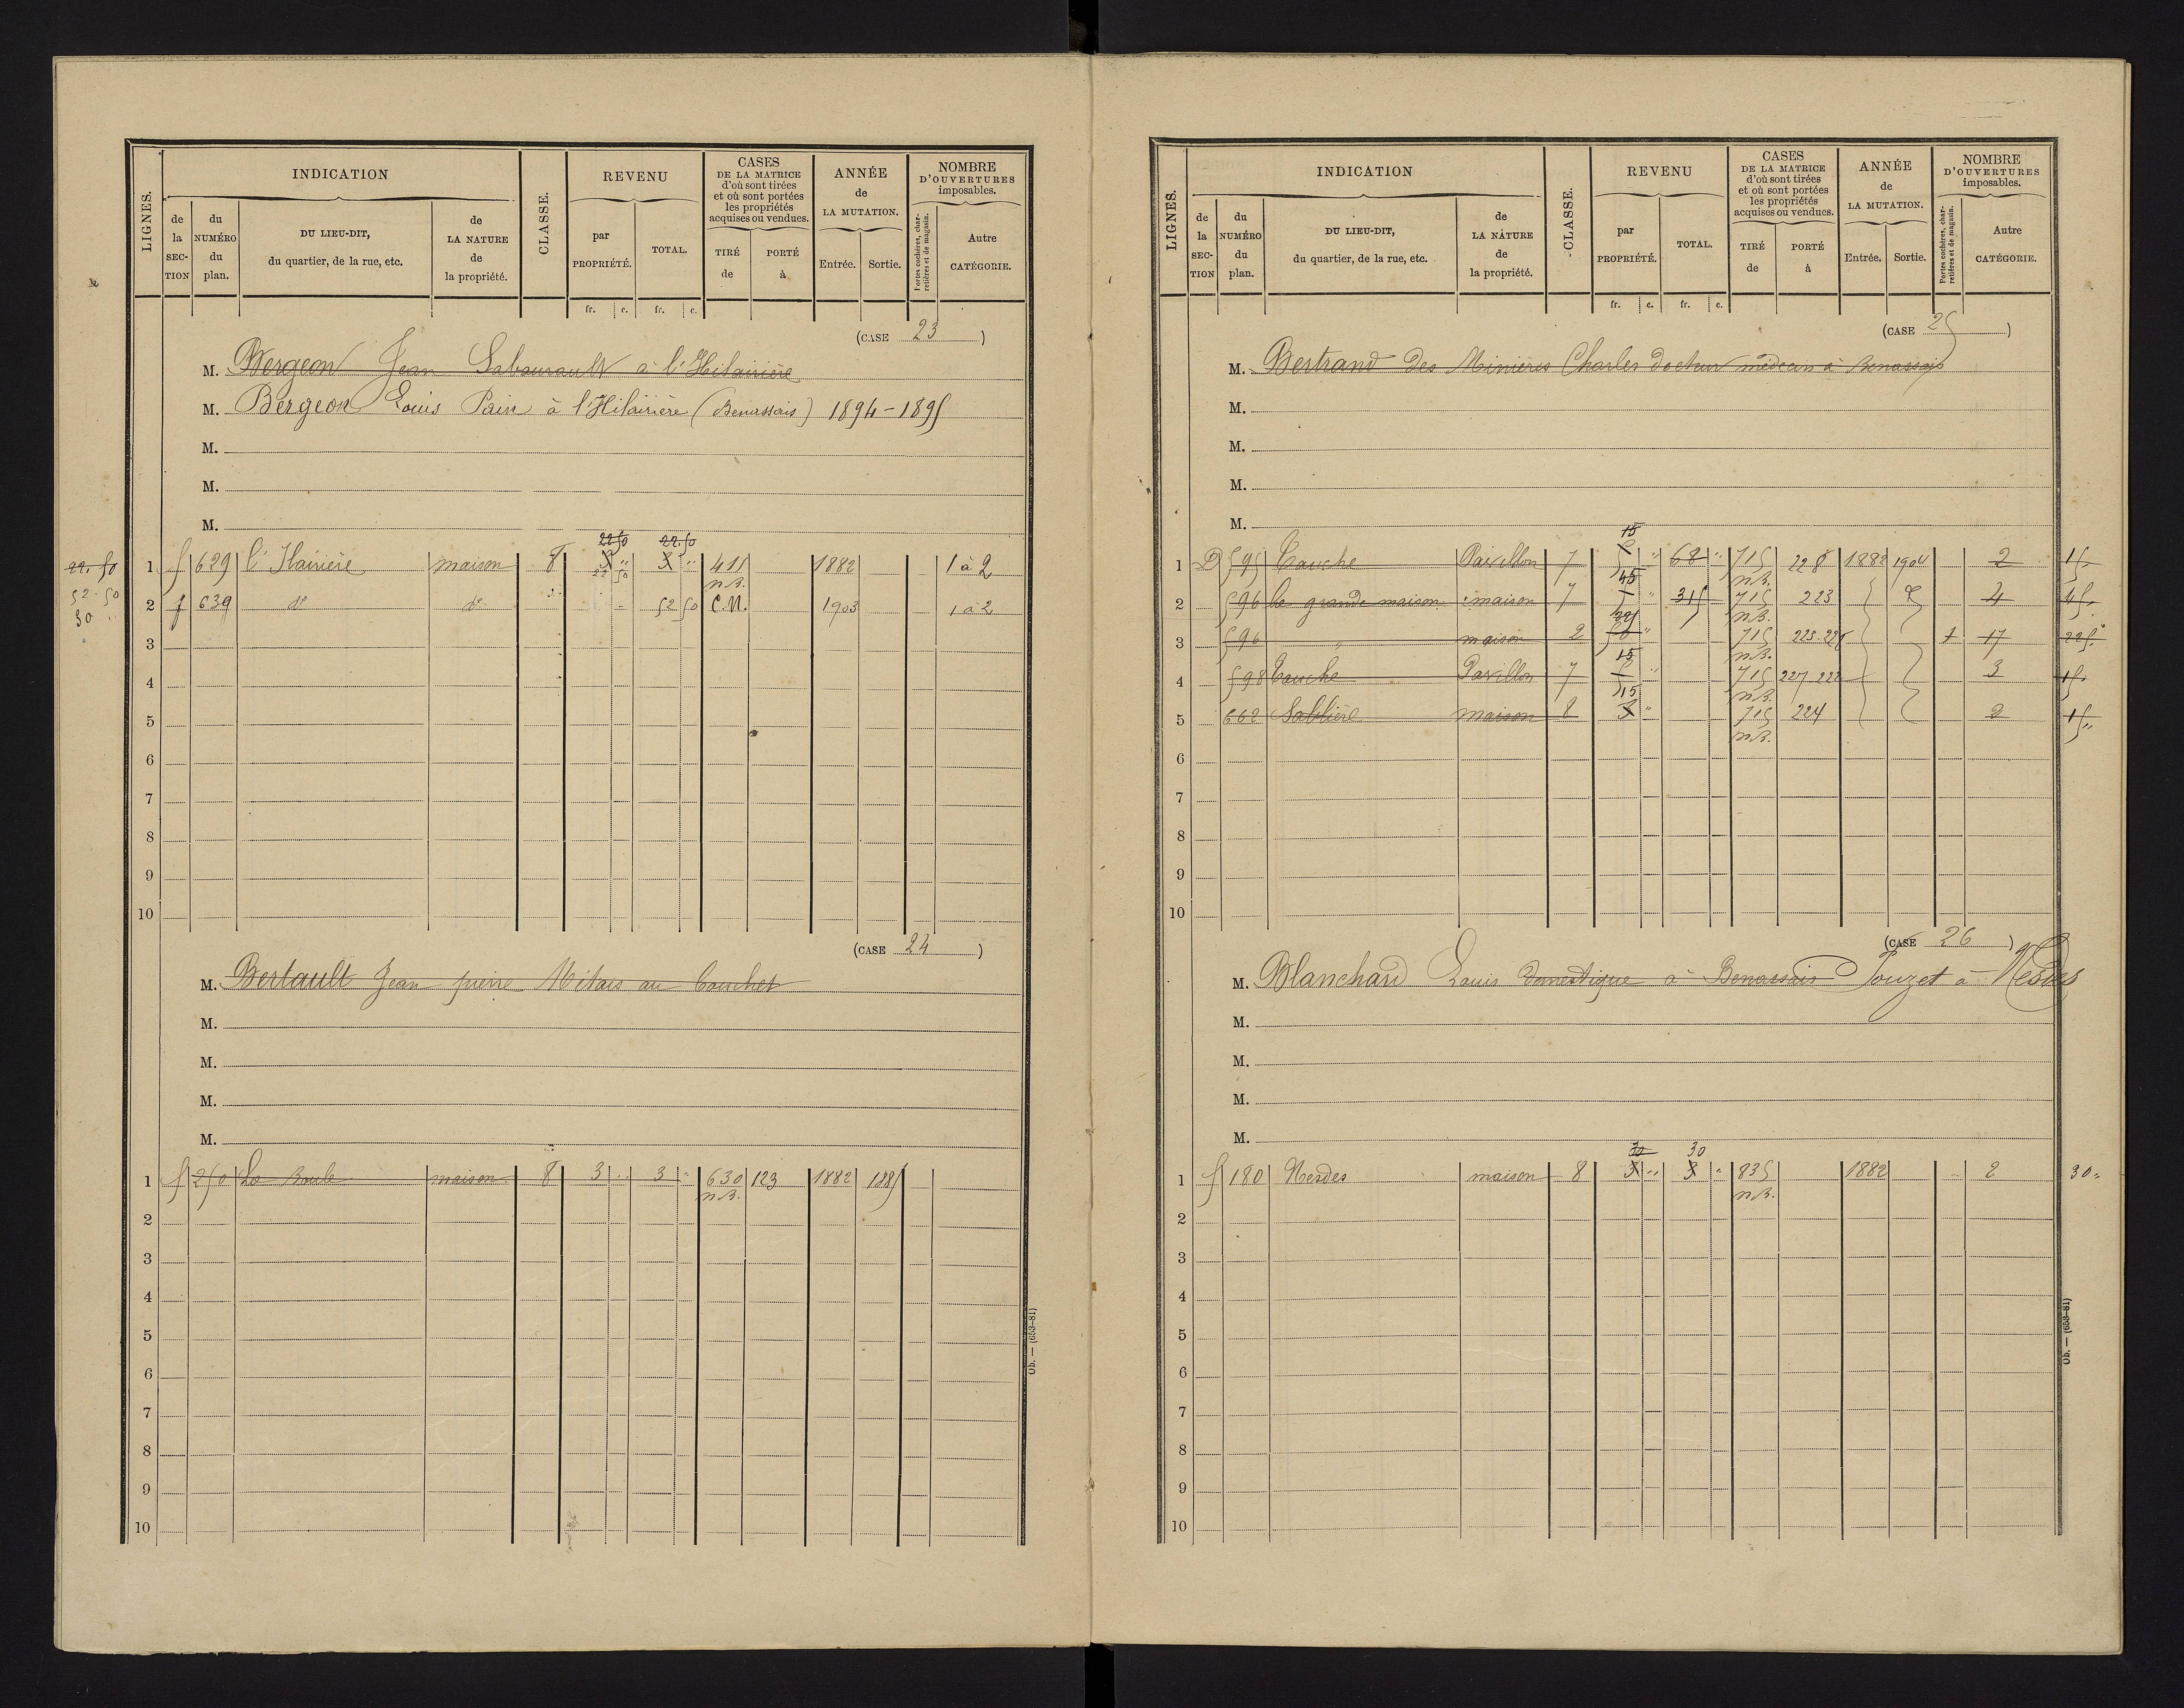 LIGNES.
INDICATION
de la SECTION
du NUMÉRO du plan.
DU LIEU-DIT, du quartier, de la rue, etc.
de LA NATURE de la propriété.
CLASSE.
REVENU
par PROPRIÉTÉ.
TOTAL.
CASES DE LA MATRICE d'où sont tirées et où sont portées les propriétés acquises ou vendues.
TIRÉ de
PORTÉ à
ANNÉE de LA MUTATION.
Entrée.
Sortie.
NOMBRE D'OUVERTURES imposables.
Portes cochères, charretières et de magasin.
Autre CATÉGORIE.
fr. c. fr. c.
(CASE 23 )
M. Bergeon Jean Sabourault à l'Hilairière
M. Bergeon Louis Pain à l'Hilairière (Benassais) 1894-1895
M.
M.
M.
22.50 22.50
22.50 1 f 629 l'Hairière maison 8 3 " 3 " 411 1882 1 à 2
22 50 n.B.
52.50
2 f 639 do do 52 50 C.N. 1903 1 à 2
30 "
3
4
5
6
7
8
9
10
(CASE 24 )
M. Bertault Jean pierre Mitais au Couchet
M.
M.
M.
M.
1 f 250 La Boule maison 8 3 " 3 " 630 123 1882 1885
n.B.
2
3
4
5
6
7
8
9
10
Ob. — (653-81)
LIGNES.
INDICATION
de la SECTION
du NUMÉRO du plan.
DU LIEU-DIT, du quartier, de la rue, etc.
de LA NATURE de la propriété.
CLASSE.
REVENU
par PROPRIÉTÉ.
TOTAL.
CASES DE LA MATRICE d'où sont tirées et où sont portées les propriétés acquises ou vendues.
TIRÉ de
PORTÉ à
ANNÉE de LA MUTATION.
Entrée.
Sortie.
NOMBRE D'OUVERTURES imposables.
Portes cochères, charretières et de magasin.
Autre CATÉGORIE.
fr. c. fr. c.
(CASE 25 )
M. Bertrand des Minières Charles docteur médecin à Benassais
M.
M.
M.
M.
15
1 D 595 Touche Pavillon 7 5 " 68 " 715 228 1882 1904 2 15 "
45 n.B.
2 596 la grande maison maison 7 5 " 315 715 223 4 45 "
225 n.B.
3 596 " maison 2 50 " 715 223.228 1 17 225 "
15 n.B.
4 598 Touche Pavillon 7 5 " 715 227 228 3 15 "
15 n.B.
5 662 Sablière maison 8 3 " 715 224 2 15 "
n.B.
6
7
8
9
10
(CASE 26 )
M. Blanchard Louis Domestique à Benassais Pouzet à Nesdes
M.
M.
M.
M.
30 30
1 f 180 Nesdes maison 8 3 " 3 " 835 1882 2 30 "
n.B.
2
3
4
5
6
7
8
9
10
Ob. — (653-81)